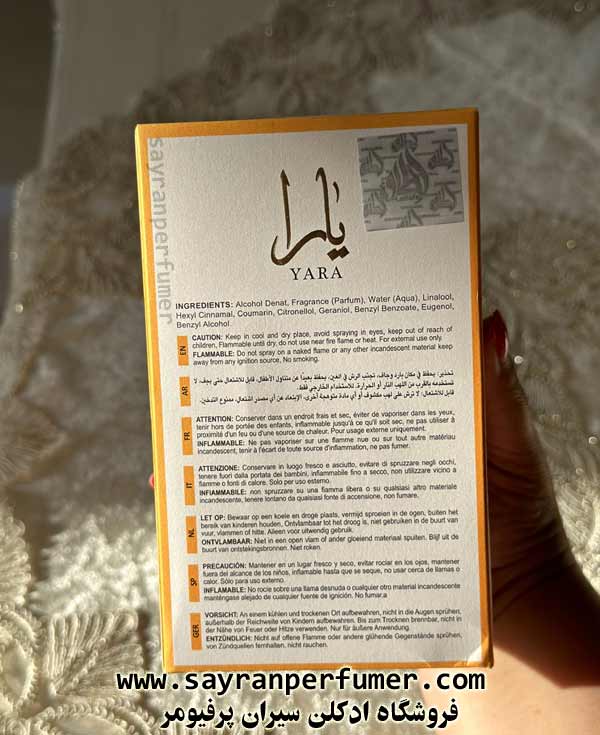 sayranperfumer
يارا
YARA
INGREDIENTS: Alcohol Denat, Fragrance (Parfum), Water (Aqua), Linalool,
Hexyl Cinnamal, Coumarin, Citronellol, Geraniol, Benzyl Benzoate, Eugenol,
Benzyl Alcohol.
EN
CAUTION: Keep in cool and dry place, avoid spraying in eyes, keep out of reach of
children, Flammable until dry, do not use near fire flame or heat. For external use only.
FLAMMABLE: Do not spray on a naked flame or any other incandescent material keep
away from any ignition source, No smoking.
AR
تحذير: يحفظ في مكان بارد وجاف، تجنب الرش في العين، يحفظ بعيداً عن متناول الأطفال، قابل للاشتعال حتى يجف، لا
تستخدمه بالقرب من اللهب النار أو الحرارة، للاستخدام الخارجي فقط.
قابل للاشتعال: لا ترش على لهب مكشوف أو أي مادة متوهجة أخرى، الإبتعاد عن أي مصدر اشتعال، ممنوع التدخين.
FR
ATTENTION: Conserver dans un endroit frais et sec, éviter de vaporiser dans les yeux,
tenir hors de portée des enfants, inflammable jusqu'à ce qu'il soit sec, ne pas utiliser à
proximité d'un feu ou d'une source de chaleur. Pour usage externe uniquement.
INFLAMMABLE: Ne pas vaporiser sur une flamme nue ou sur tout autre matériau
incandescent, tenir à l'écart de toute source d'inflammation, ne pas fumer.
IT
ATTENZIONE: Conservare in luogo fresco e asciutto, evitare di spruzzare negli occhi,
tenere fuori dalla portata dei bambini, infiammabile fino a secco, non utilizzare vicino a
fiamme o fonti di calore. Solo per uso esterno.
INFIAMMABILE: non spruzzare su una fiamma libera o su qualsiasi altro materiale
incandescente, tenere lontano da qualsiasi fonte di accensione, non fumare.
NL
LET OP: Bewaar op een koele en droge plaats, vermijd sproeien in de ogen, buiten het
bereik van kinderen houden, Ontvlambaar tot het droog is, niet gebruiken in de buurt van
vuur, vlammen of hitte. Alleen voor uitwendig gebruik.
ONTVLAMBAAR: Niet in een open vlam of ander gloeiend materiaal spuiten. Blijf uit de
buurt van ontstekingsbronnen. Niet roken.
SP
PRECAUCIÓN: Mantener en un lugar fresco y seco, evitar rociar en los ojos, mantener
fuera del alcance de los niños, inflamable hasta que se seque, no usar cerca de llamas o
calor. Sólo para uso externo.
INFLAMABLE: No rocíe sobre una llama desnuda o cualquier otro material incandescente
manténgase alejado de cualquier fuente de ignición. No fumar.a
GER
VORSICHT: An einem kühlen und trockenen Ort aufbewahren, nicht in die Augen sprühen,
außerhalb der Reichweite von Kindern aufbewahren. Bis zum Trocknen brennbar, nicht in
der Nähe von Feuer oder Hitze verwenden. Nur für äußere Anwendung.
ENTZÜNDLICH: Nicht auf offene Flamme oder andere glühende Gegenstände sprühen,
von Zündquellen fernhalten, nicht rauchen.
www.sayranperfumer.com
فروشگاه ادکلن سیران پرفیومر